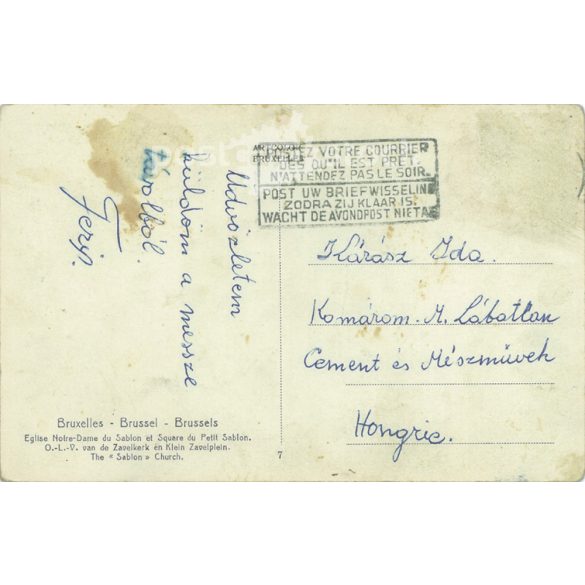 POSTEZ VOTRE COURRIER
DES QU'IL EST PRET.
N'ATTENDEZ PAS LE SOIR.
POST UW BRIEFWISSELIN
ZODRA ZIJ KLAAR IS.
WACHT DE AVONDPOST NIET A
BRUXELLES
Üdvözletem
küldöm a messze
távolból
Feri.
Kárász Ida.
Komárom-M. Lábatlan
Cement és Mészmüvek
Hongrie.
Bruxelles - Brussel - Brussels
Eglise Notre-Dame du Sablon et Square du Petit Sablon.
O.-L.-V. van de Zavelkerk en Klein Zavelplein.
The « Sablon » Church.
7